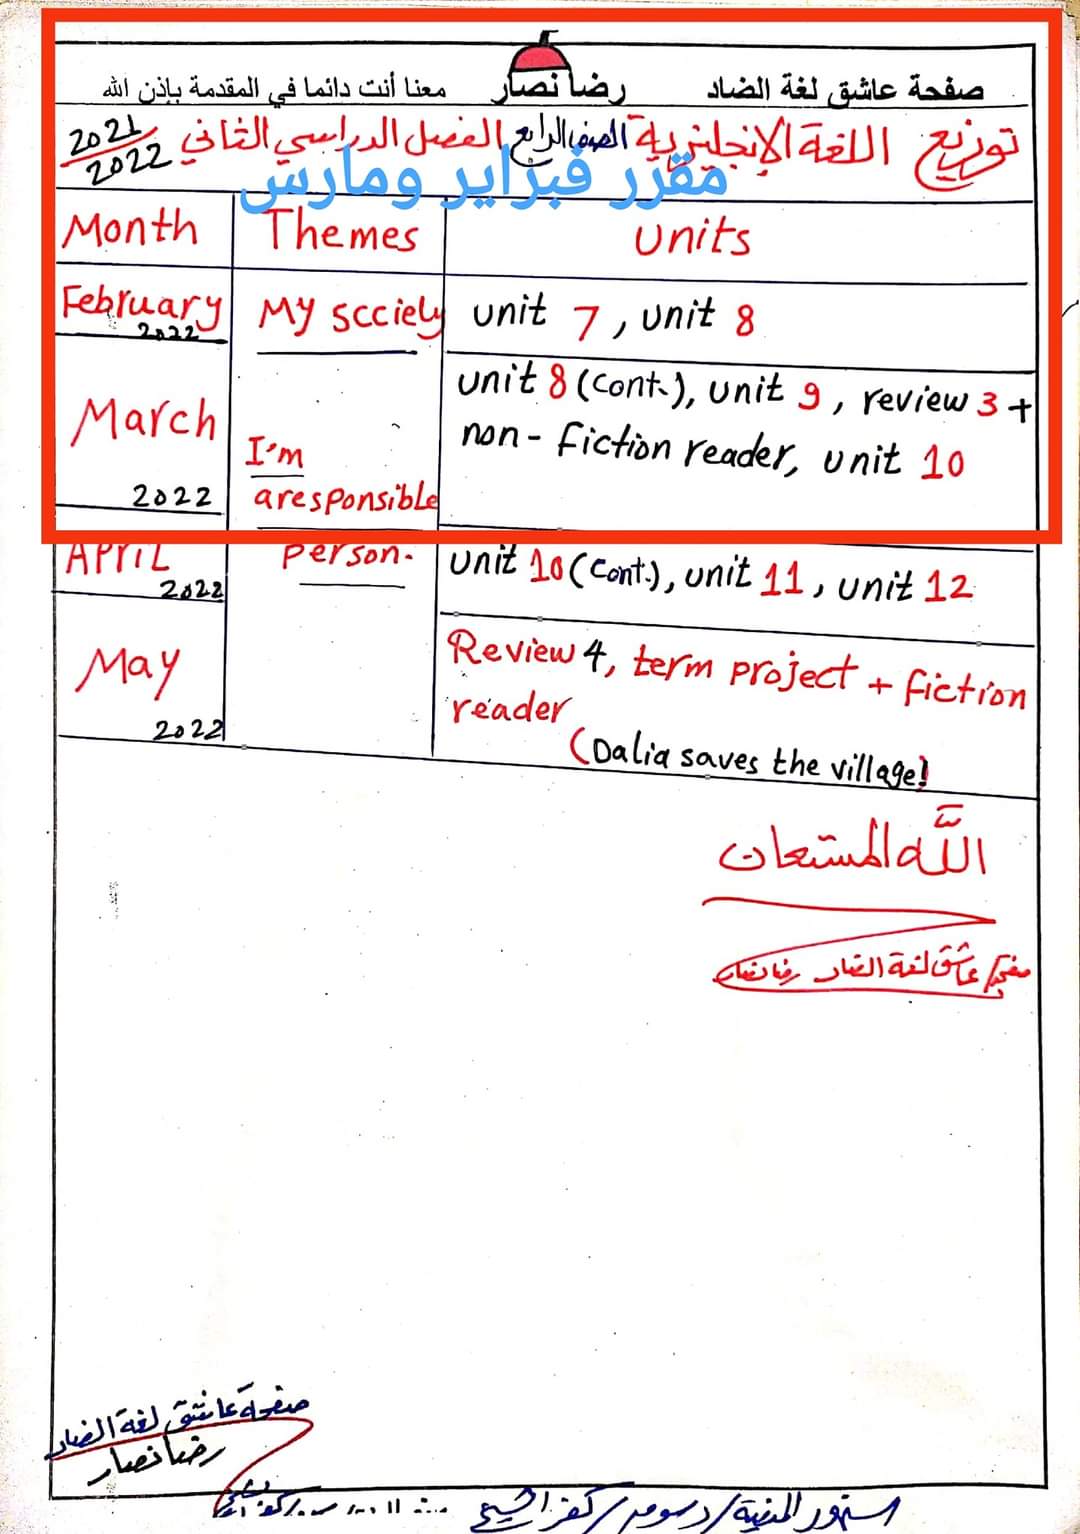 صفحة عاشق لغة الضاد رضا نصار معنا أنت دائما في المقدمة بإذن الله
توزيع اللغة الإنجليزية الصف الرابع الفصل الدراسي الثاني 2021/2022
مقرر فبراير ومارس
Month Themes Units
February 2022 My scciely unit 7, unit 8
March 2022 unit 8 (cont.), unit 9, review 3 +
non-fiction reader, unit 10
I'm
aresponsible
person.
APRIL 2022 unit 10 (cont.), unit 11, unit 12
May 2022 Review 4, term project + fiction
reader
(Dalia saves the village!
اللَّه المستعان
صفحة عاشق لغة الضاد رضا نصار
صفحة عاشق لغة الضاد
رضا نصار
دسوق / كفر الشيخ